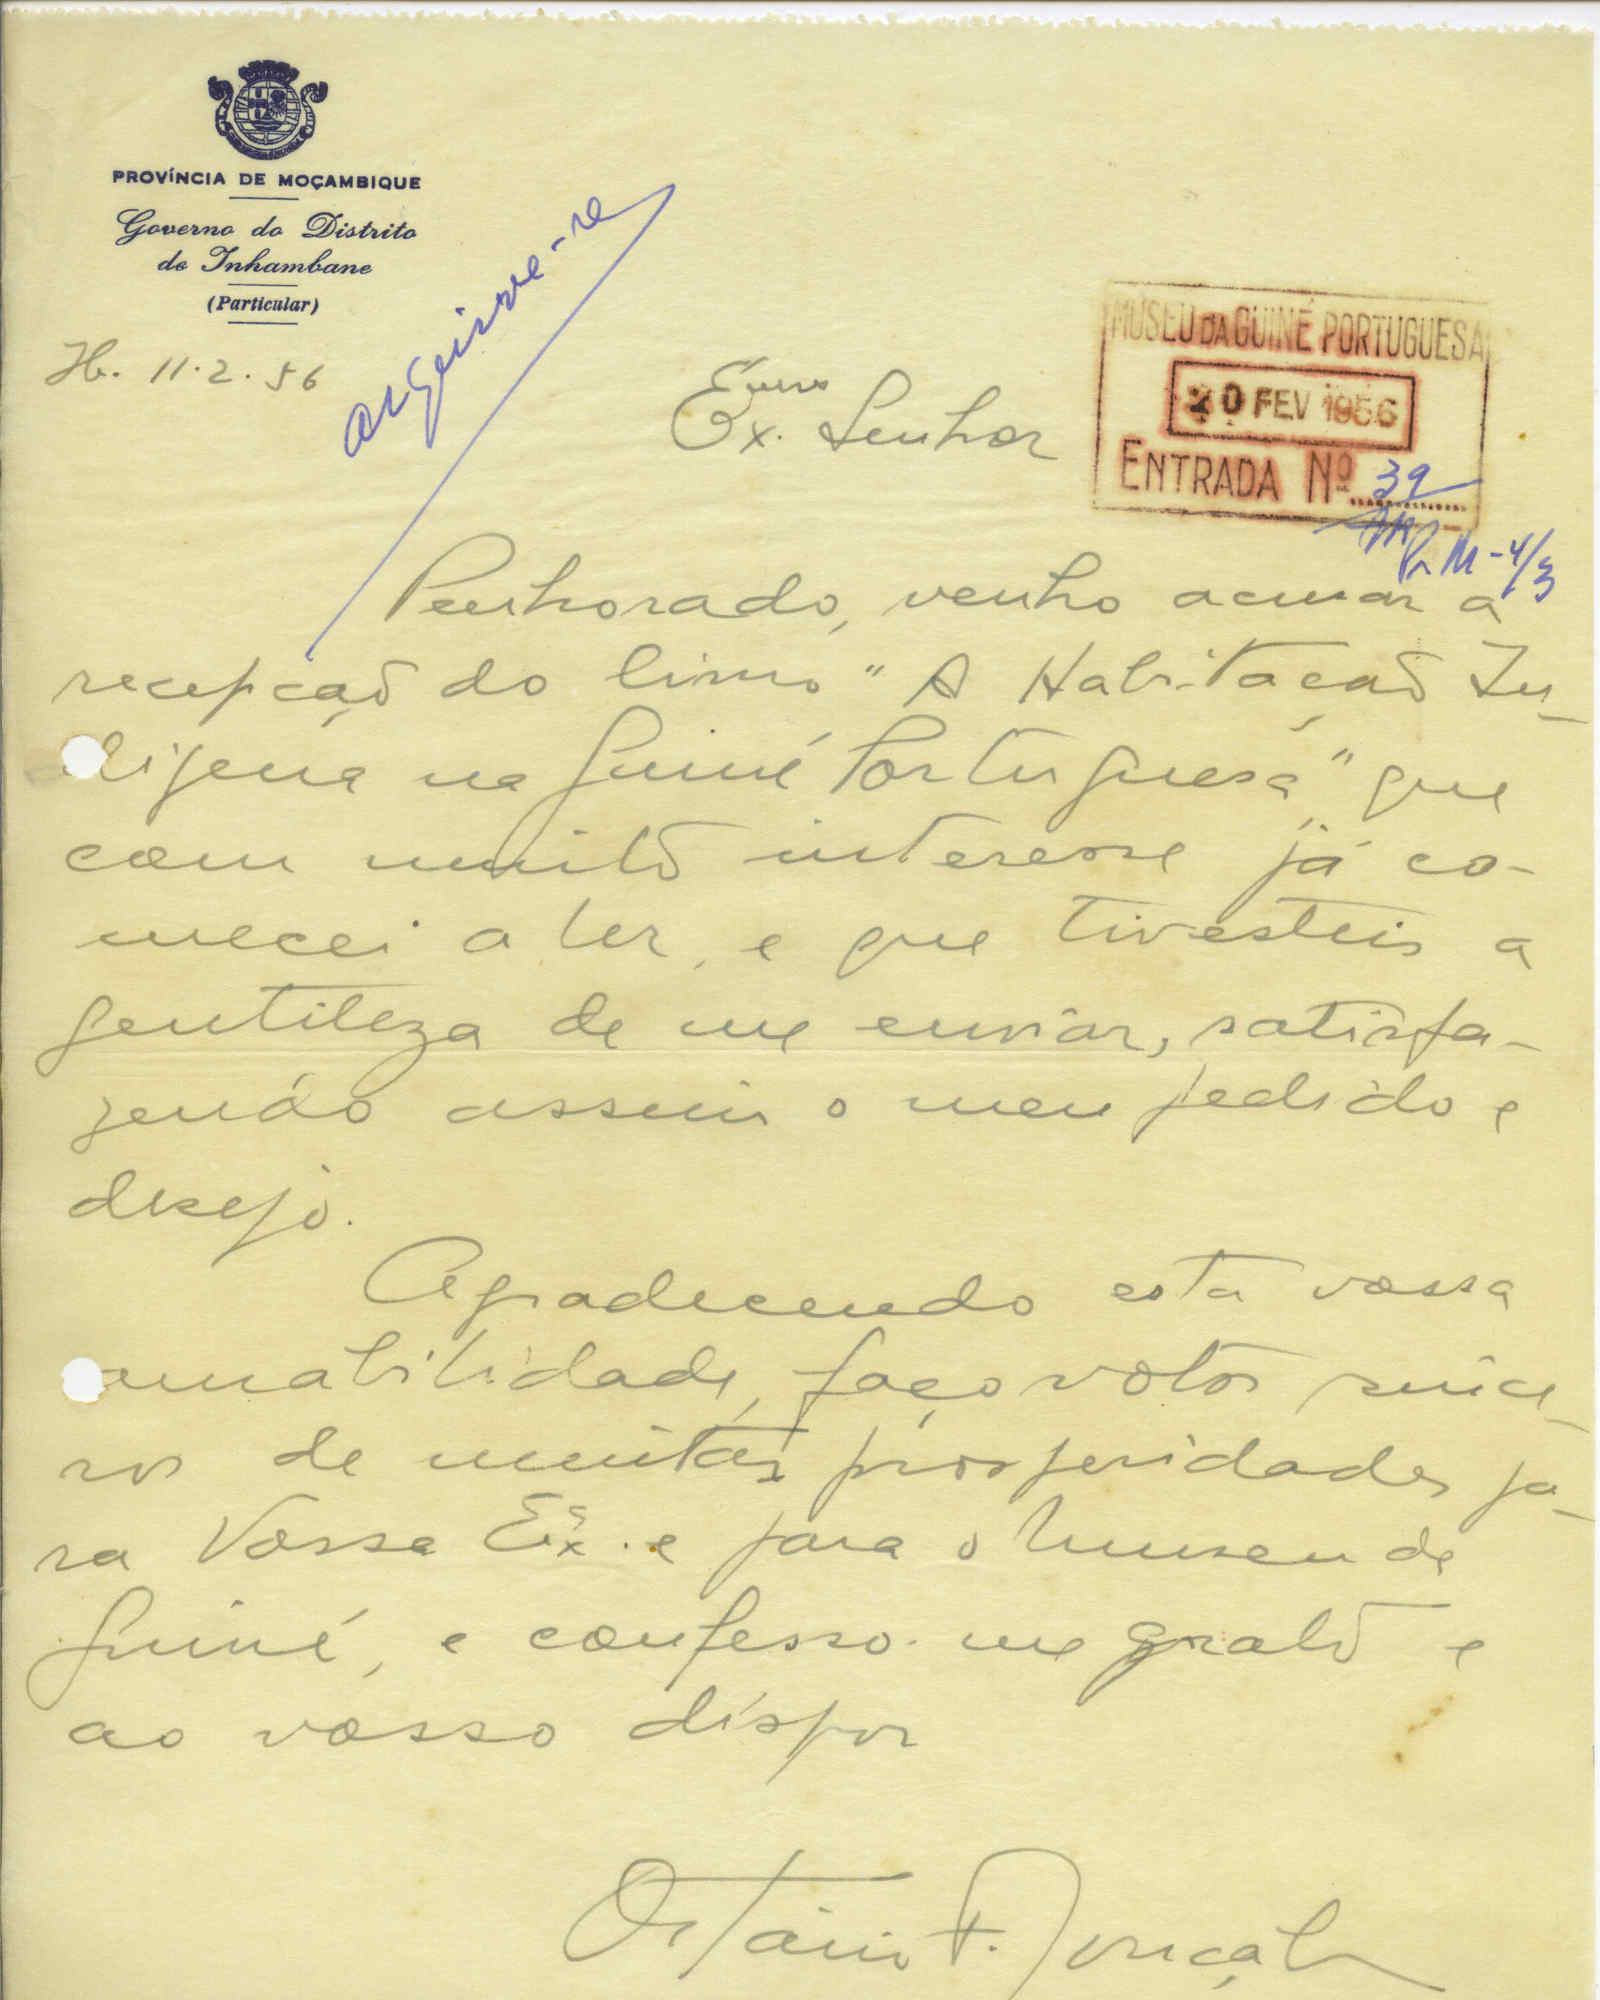 PROVÍNCIA DE MOÇAMBIQUE
Governo do Distrito
de Inhambane
(Particular)
Hb. 11.2.56
arquive-se
MUSEU DA GUINÉ PORTUGUESA
20 FEV 1956
ENTRADA Nº 39
M-4/3
Exmo. Senhor
Penhorado, venho acusar a
recepção do livro "A Habitação In-
digena na Guiné Portuguesa" que
com muito interesse já co-
mecei a ler, e que tivesteis a
gentileza de me enviar, satisfa-
zendo assim o meu pedido e
desejo.
Agradecendo esta vossa
amabilidade, faço votos since-
ros de muitas prosperidades pa-
ra Vossa Exª. e para o Museu da
Guiné, e confesso-me grato e
ao vosso dispor
Octávio F. Gonçalves